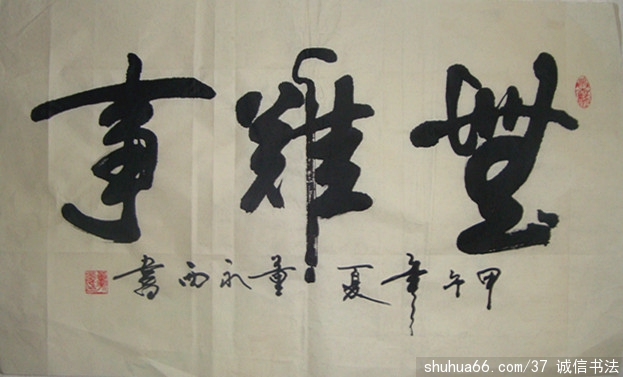 無難事
甲午年夏董永西書
shuhua66.com/37 诚信书法